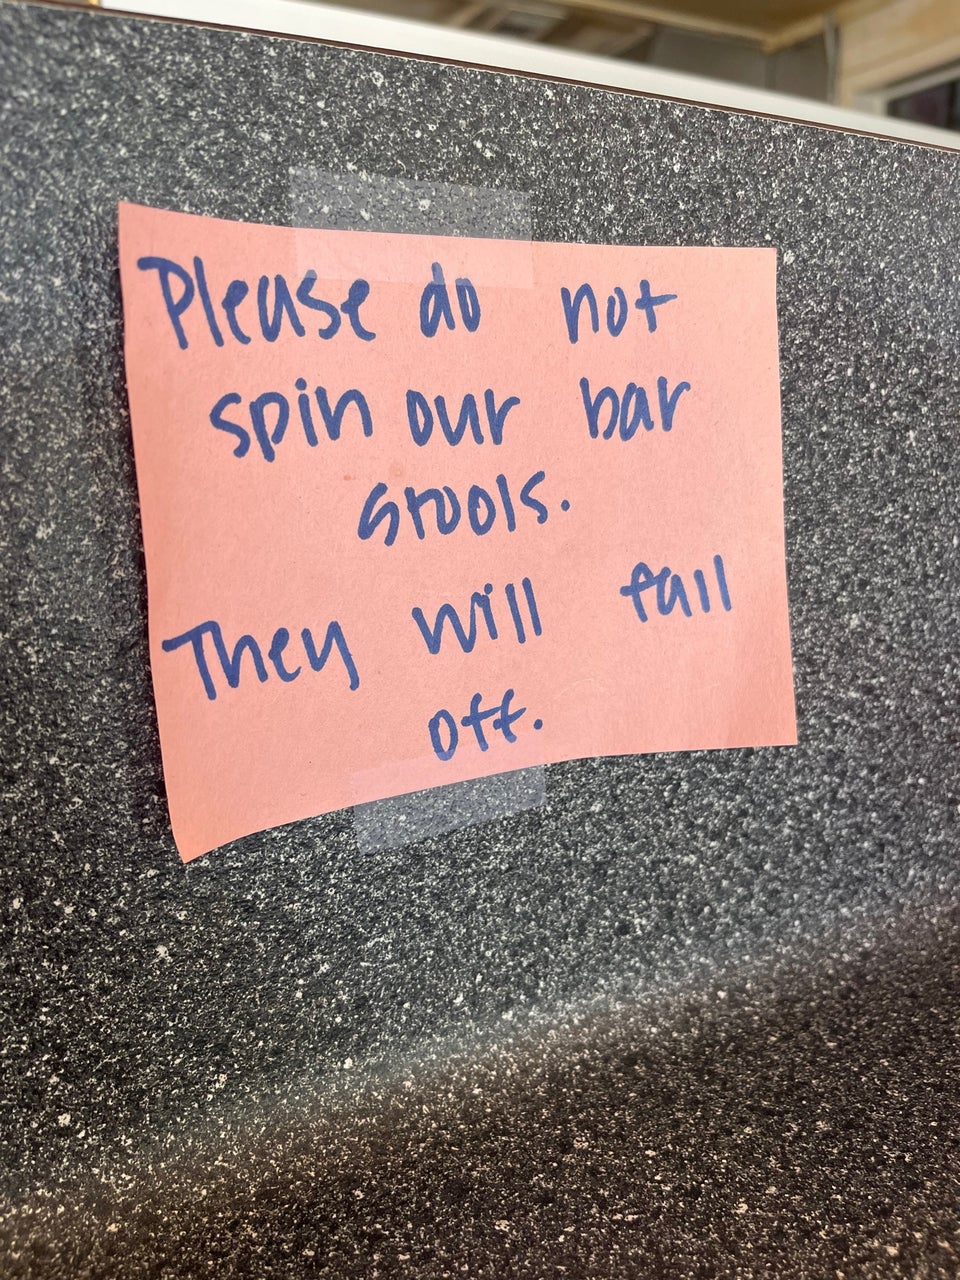 Please do not
spin our bar
stools.
They will fall
off.